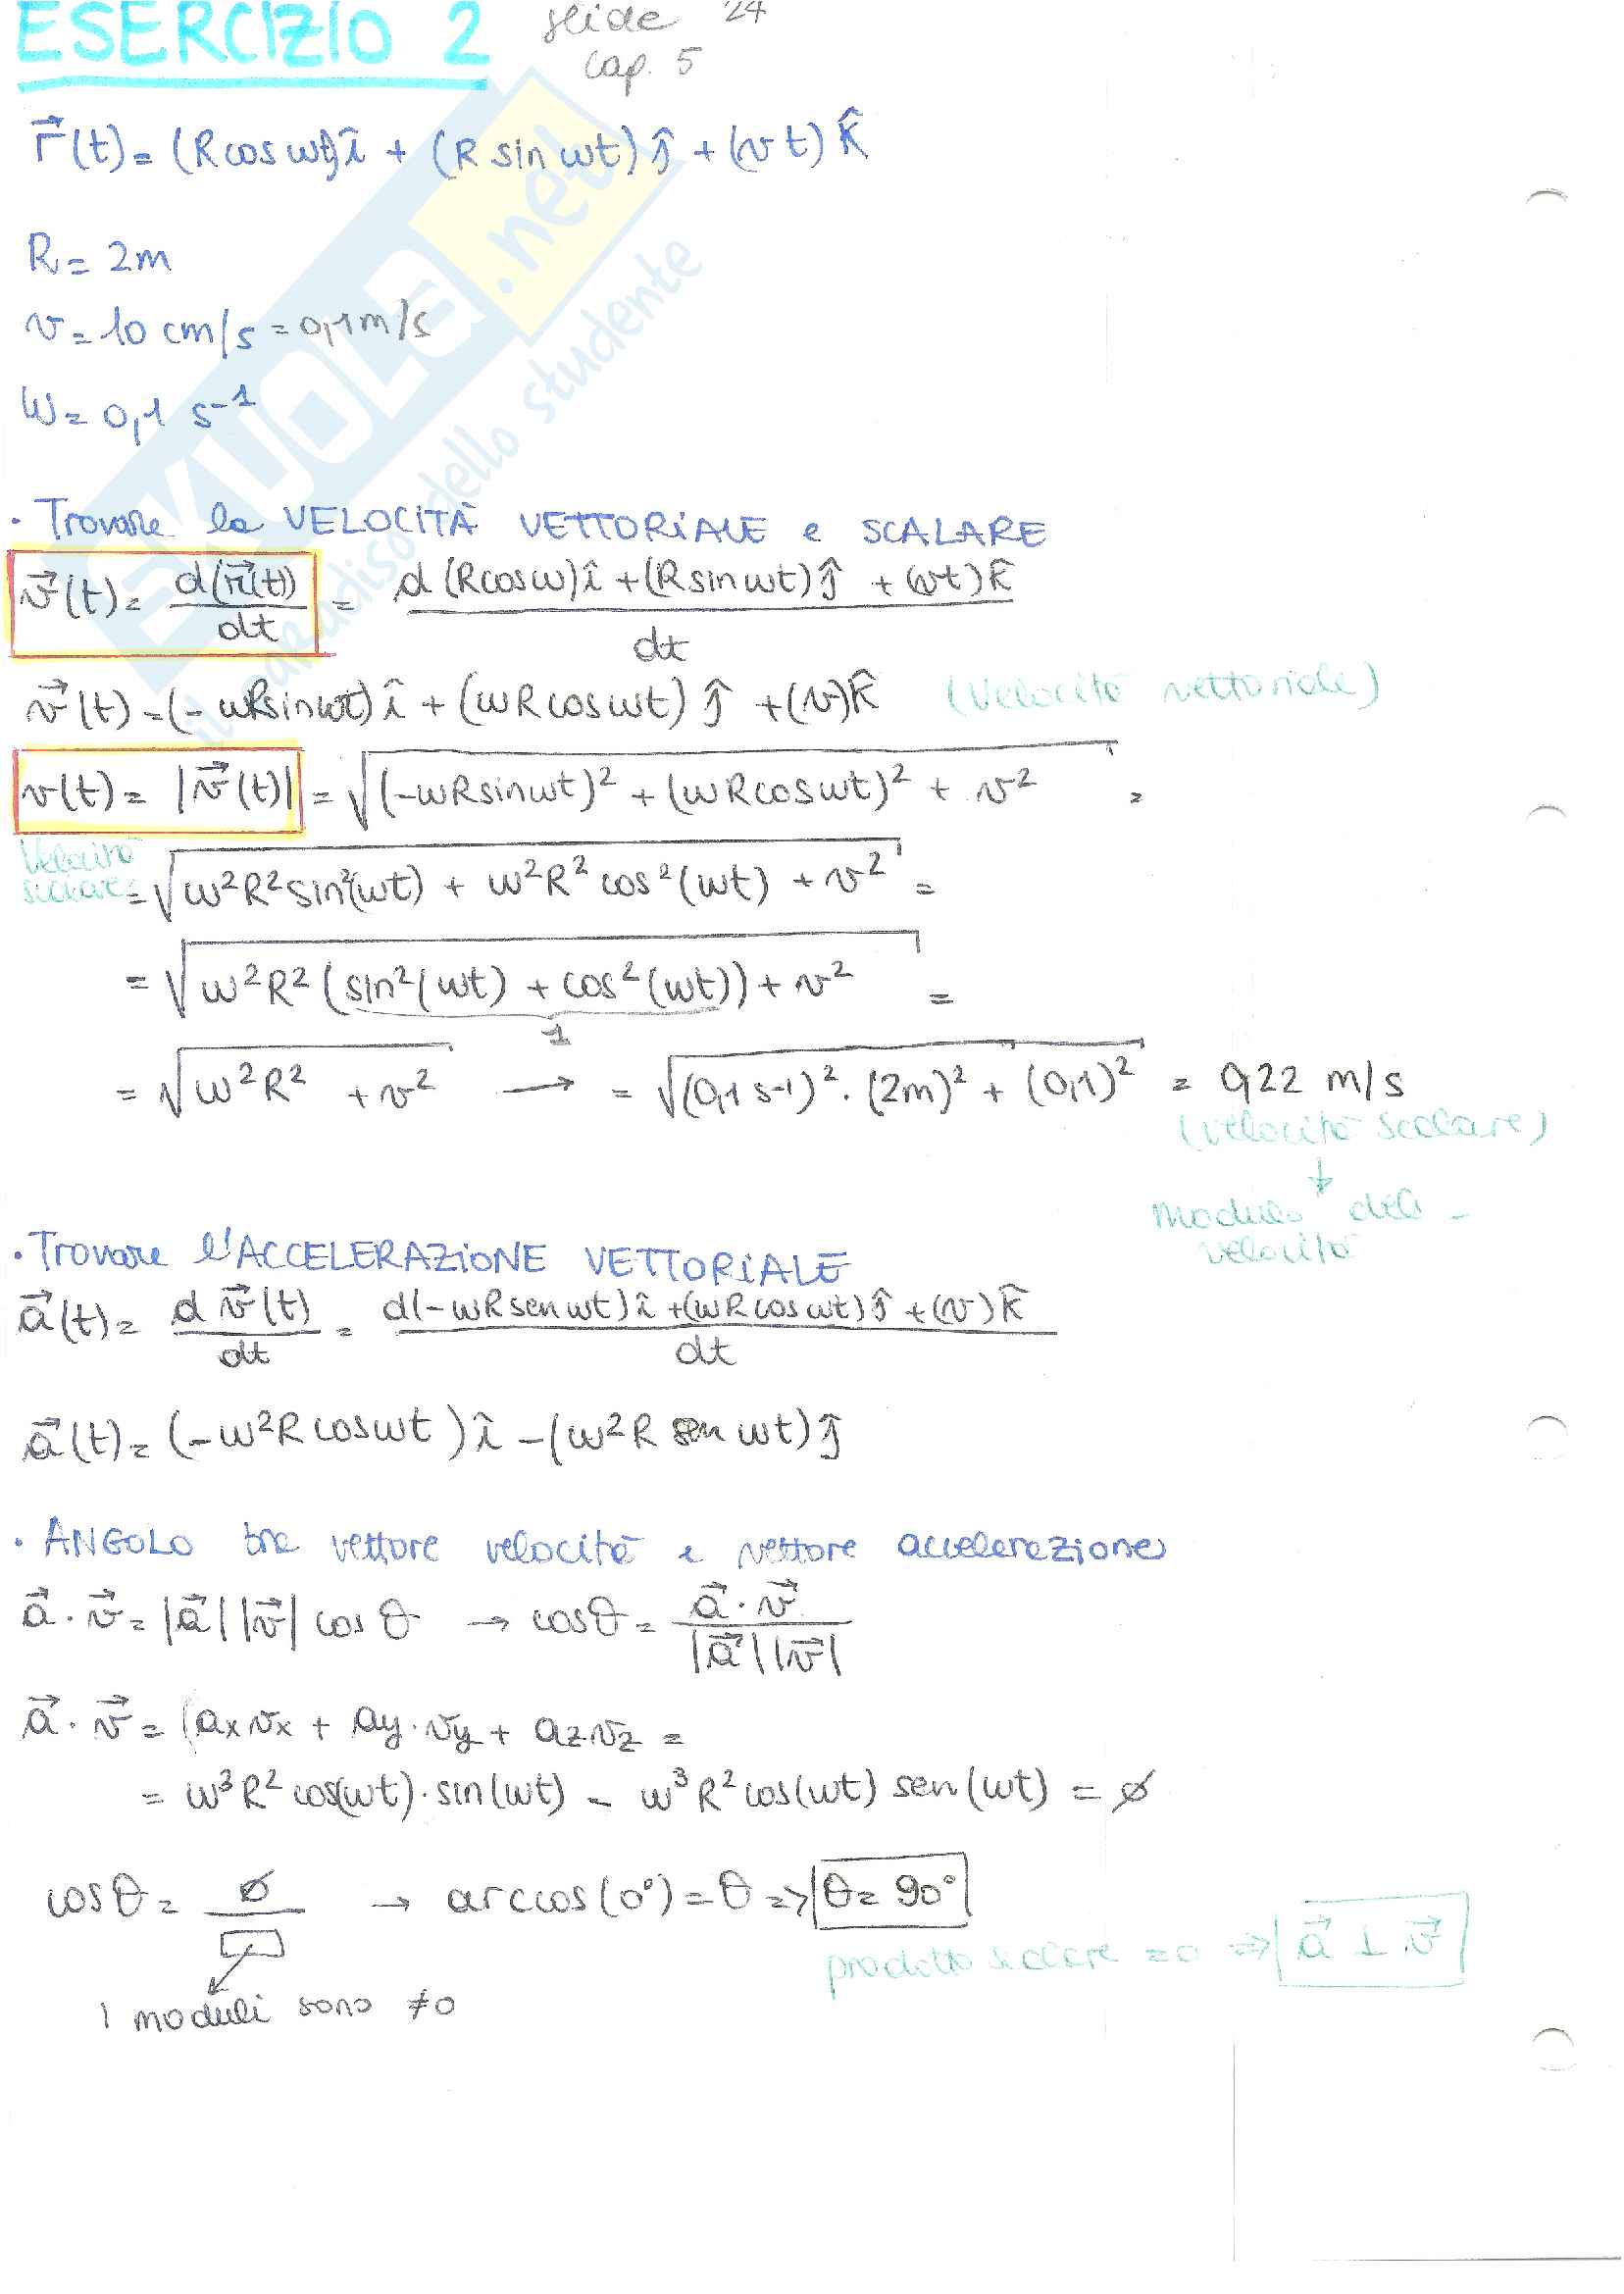 ESERCIZIO 2 slide 24
cap. 5
r⃗(t) = (R cos ωt) î + (R sin ωt) ĵ + (v t) k̂
R = 2m
v = 10 cm/s = 0,1 m/s
ω = 0,1 s⁻¹
SKUOLA.net
il paradiso dello studente
· Trovare la VELOCITÀ VETTORIALE e SCALARE
v⃗(t) = d(r⃗(t))/dt = d (R cos ω) î + (R sin ωt) ĵ + (vt) k̂ / dt
v⃗(t) = (- ωR sin ωt) î + (ωR cos ωt) ĵ + (v) k̂ (Velocità vettoriale)
v(t) = |v⃗(t)| = √((-ωR sin ωt)² + (ωR cos ωt)² + v²) =
Velocità
scalare = √(ω²R² sin²(ωt) + ω²R² cos²(ωt) + v²) =
= √(ω²R² (sin²(ωt) + cos²(ωt)) + v²) =
1
= √(ω²R² + v²) → = √((0,1 s-1)² · (2m)² + (0,1)²) = 0,22 m/s
(velocità scalare)
↓
modulo dell -
velocità
· Trovare l'ACCELERAZIONE VETTORIALE
a⃗(t) = d v⃗(t)/dt = d(-ωR sen ωt) î + (ωR cos ωt) ĵ + (v) k̂ / dt
a⃗(t) = (-ω²R cos ωt) î - (ω²R sen ωt) ĵ
· ANGOLO tra vettore velocità e vettore accelerazione
a⃗ · v⃗ = |a⃗| |v⃗| cos θ → cos θ = a⃗ · v⃗ / |a⃗| |v⃗|
a⃗ · v⃗ = (ax vx + ay · vy + az vz =
= ω³R² cos(ωt) · sin(ωt) - ω³R² cos(ωt) sen(ωt) = ∅
cos θ = ∅ / ▭ → arccos(0°) = θ => θ = 90°
prodotto scalare = 0 => a⃗ ⊥ v⃗
I moduli sono ≠ 0